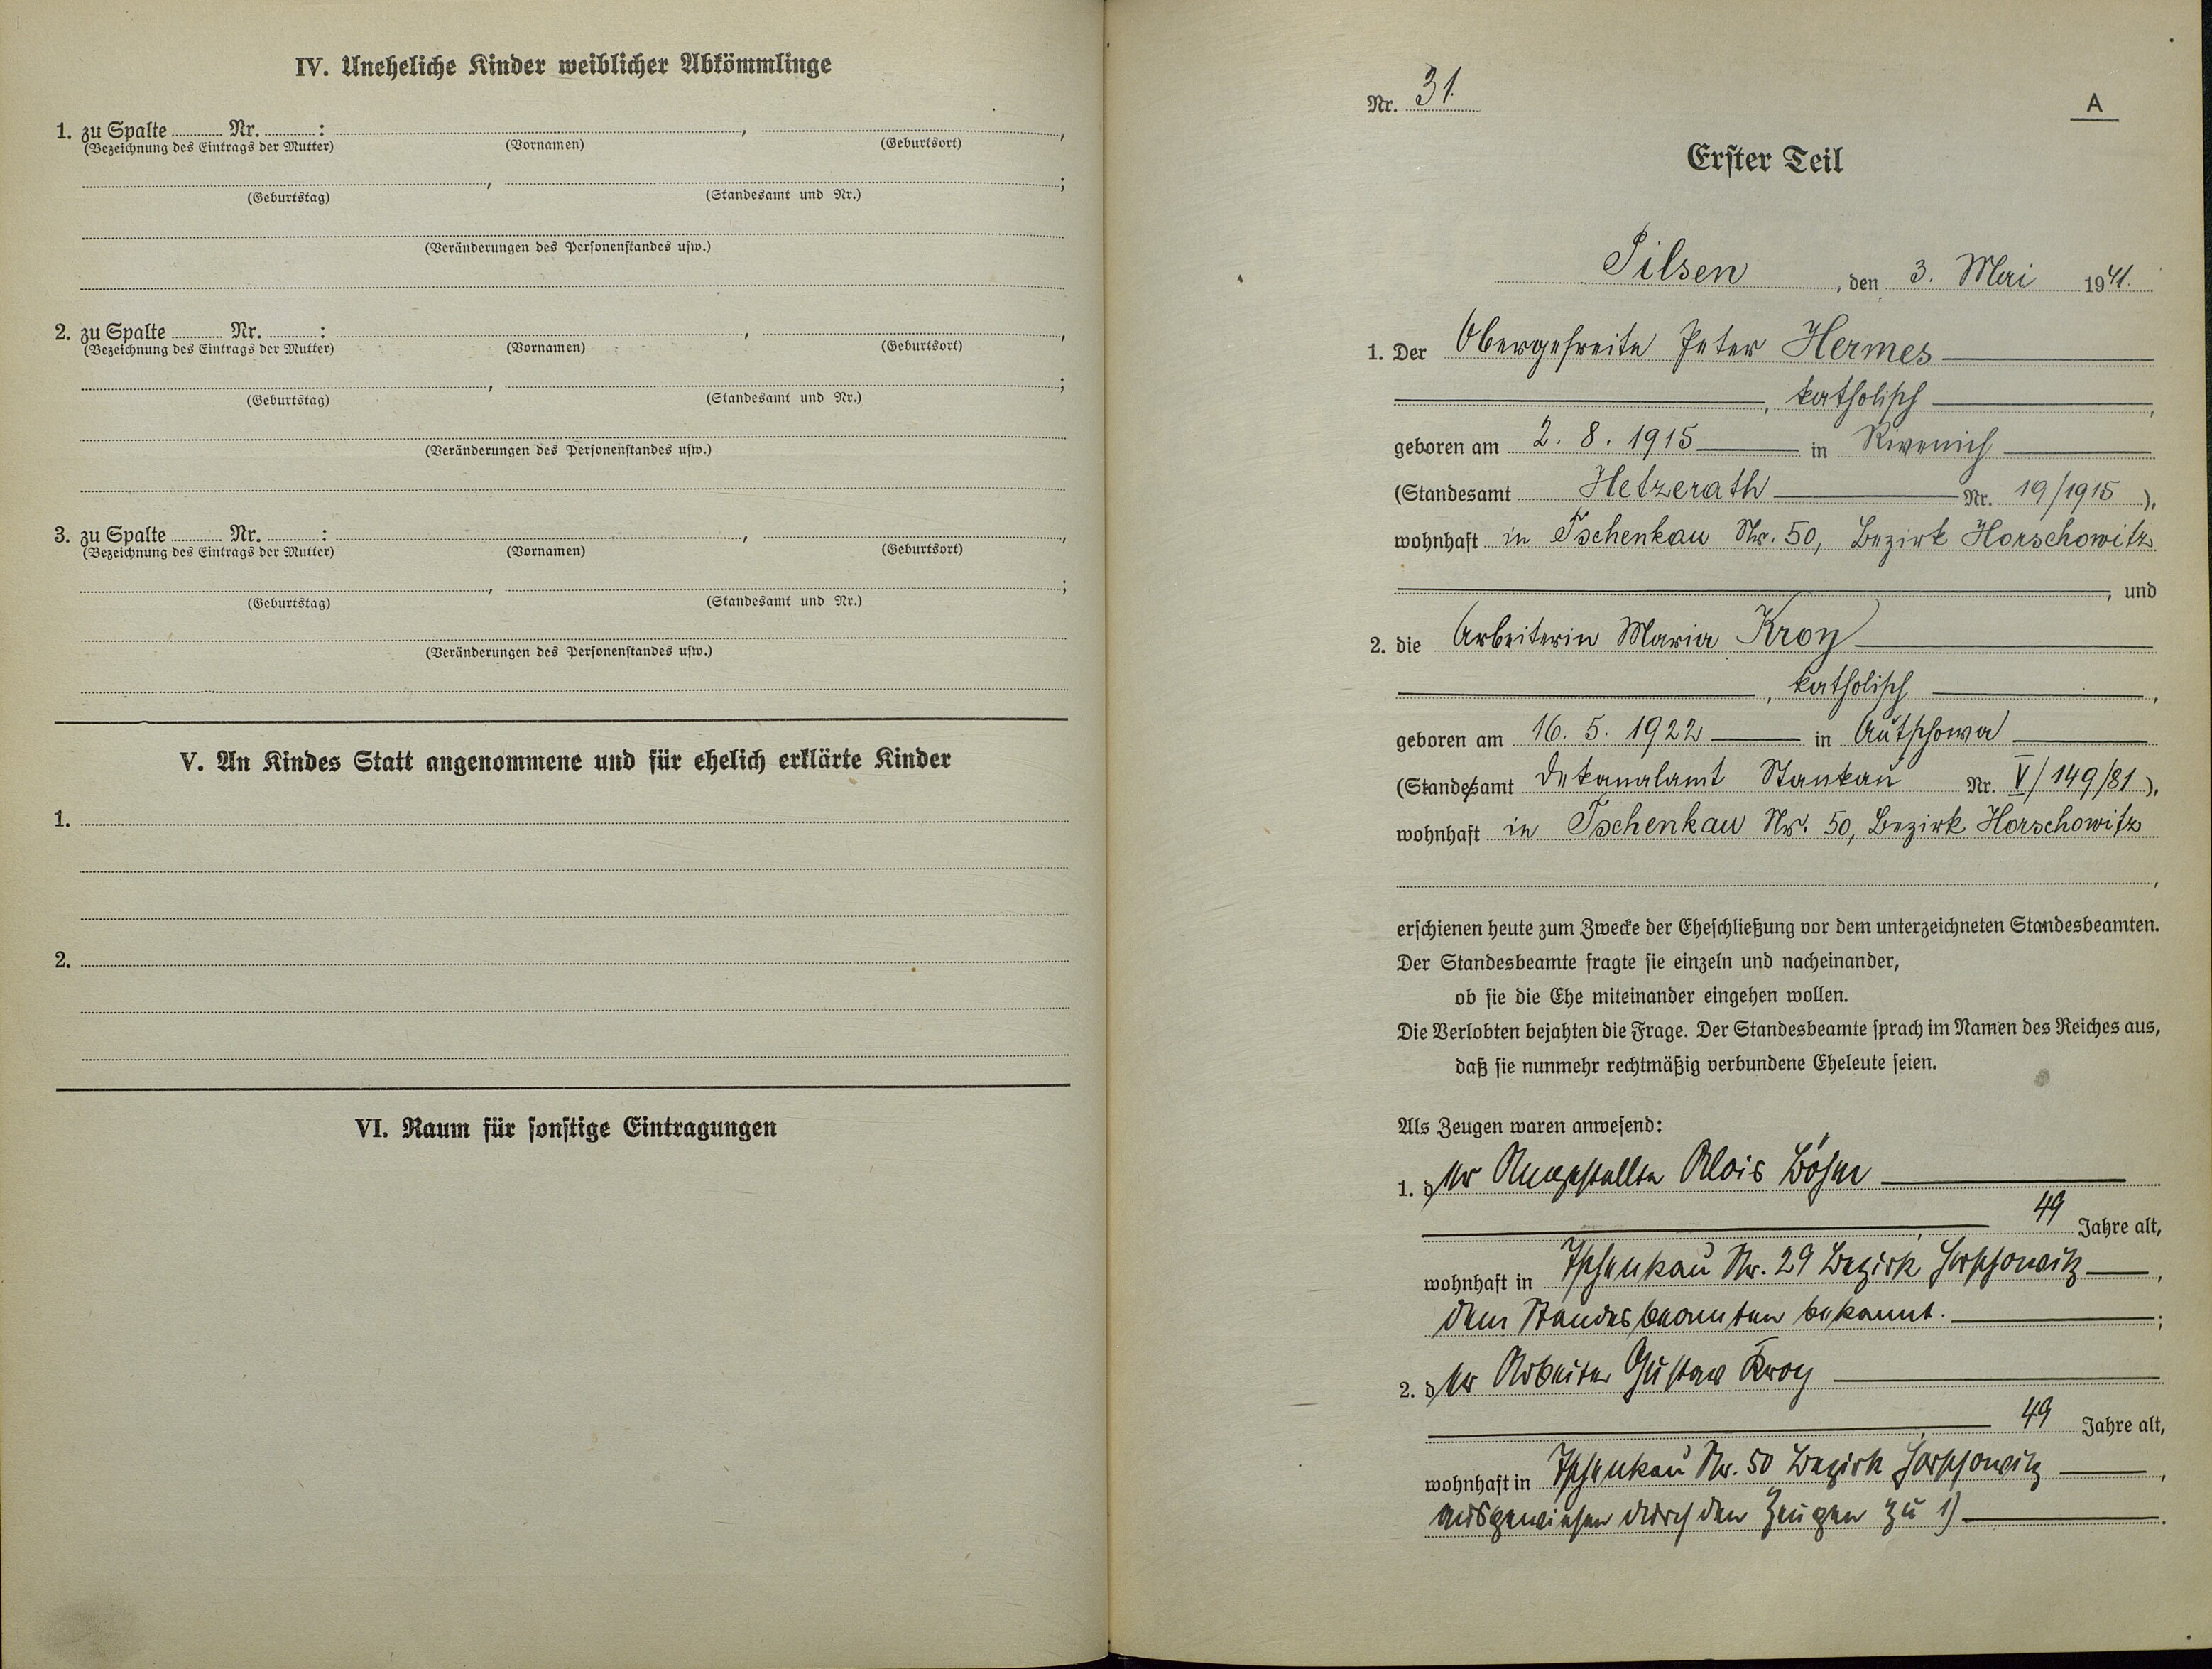 IV. Uneheliche Kinder weiblicher Abkömmlinge
1. zu Spalte ........ Nr. ........ : ........ , ........ ,
(Bezeichnung des Eintrags der Mutter) (Vornamen) (Geburtsort)
........ , ........ ;
(Geburtstag) (Standesamt und Nr.)
(Veränderungen des Personenstandes usw.)
2. zu Spalte ........ Nr. ........ : ........ , ........ ,
(Bezeichnung des Eintrags der Mutter) (Vornamen) (Geburtsort)
........ , ........ ;
(Geburtstag) (Standesamt und Nr.)
(Veränderungen des Personenstandes usw.)
3. zu Spalte ........ Nr. ........ : ........ , ........ ,
(Bezeichnung des Eintrags der Mutter) (Vornamen) (Geburtsort)
........ , ........ ;
(Geburtstag) (Standesamt und Nr.)
(Veränderungen des Personenstandes usw.)
V. An Kindes Statt angenommene und für ehelich erklärte Kinder
1.
2.
VI. Raum für sonstige Eintragungen
Nr. 31.
A
Erster Teil
Pilsen, den 3. Mai 1941.
1. Der Obergefreite Peter Hermes
, katholisch ,
geboren am 2. 8. 1915 in Rivenich
(Standesamt Hetzerath Nr. 19/1915 ),
wohnhaft in Tschenkau Nr. 50, Bezirk Horschowitz
, und
2. die Arbeiterin Maria Kroy
, katholisch ,
geboren am 16. 5. 1922 in Autschowa
(Standesamt Dekanalamt Stankau Nr. V/149/81 ),
wohnhaft in Tschenkau Nr. 50, Bezirk Horschowitz
,
erschienen heute zum Zwecke der Eheschließung vor dem unterzeichneten Standesbeamten.
Der Standesbeamte fragte sie einzeln und nacheinander,
ob sie die Ehe miteinander eingehen wollen.
Die Verlobten bejahten die Frage. Der Standesbeamte sprach im Namen des Reiches aus,
daß sie nunmehr rechtmäßig verbundene Eheleute seien.
Als Zeugen waren anwesend:
1. der Angestellte Alois Böhm
, 49 Jahre alt,
wohnhaft in Tschenkau Nr. 29 Bezirk Horschowitz ,
dem Standesbeamten bekannt. ;
2. der Arbeiter Gustav Kroy
, 49 Jahre alt,
wohnhaft in Tschenkau Nr. 50 Bezirk Horschowitz ,
ausgewiesen durch den Zeugen zu 1) .